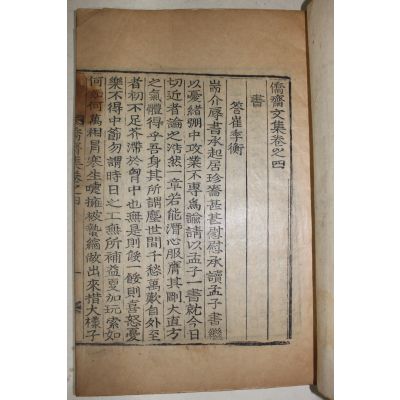 僑齋文集卷之四
書
答崔季衡
耑介辱書承起居珍嗇甚慰慰承讀孟子書繼
以憂緖弸中攻業不專爲諭請以孟子一書就今日
切近者論之浩然一章若能潛心服膺其剛大直方
之氣體得乎吾身其所謂塵世間千愁萬歎自外至
者初不足芥於胷中也無是則餒餒則喜怒憂
樂不得中節勿謂時日之工無所補益更加玩索如
何如何萬相冒寒生啑擁被蟄縮敝出來惜大樣子